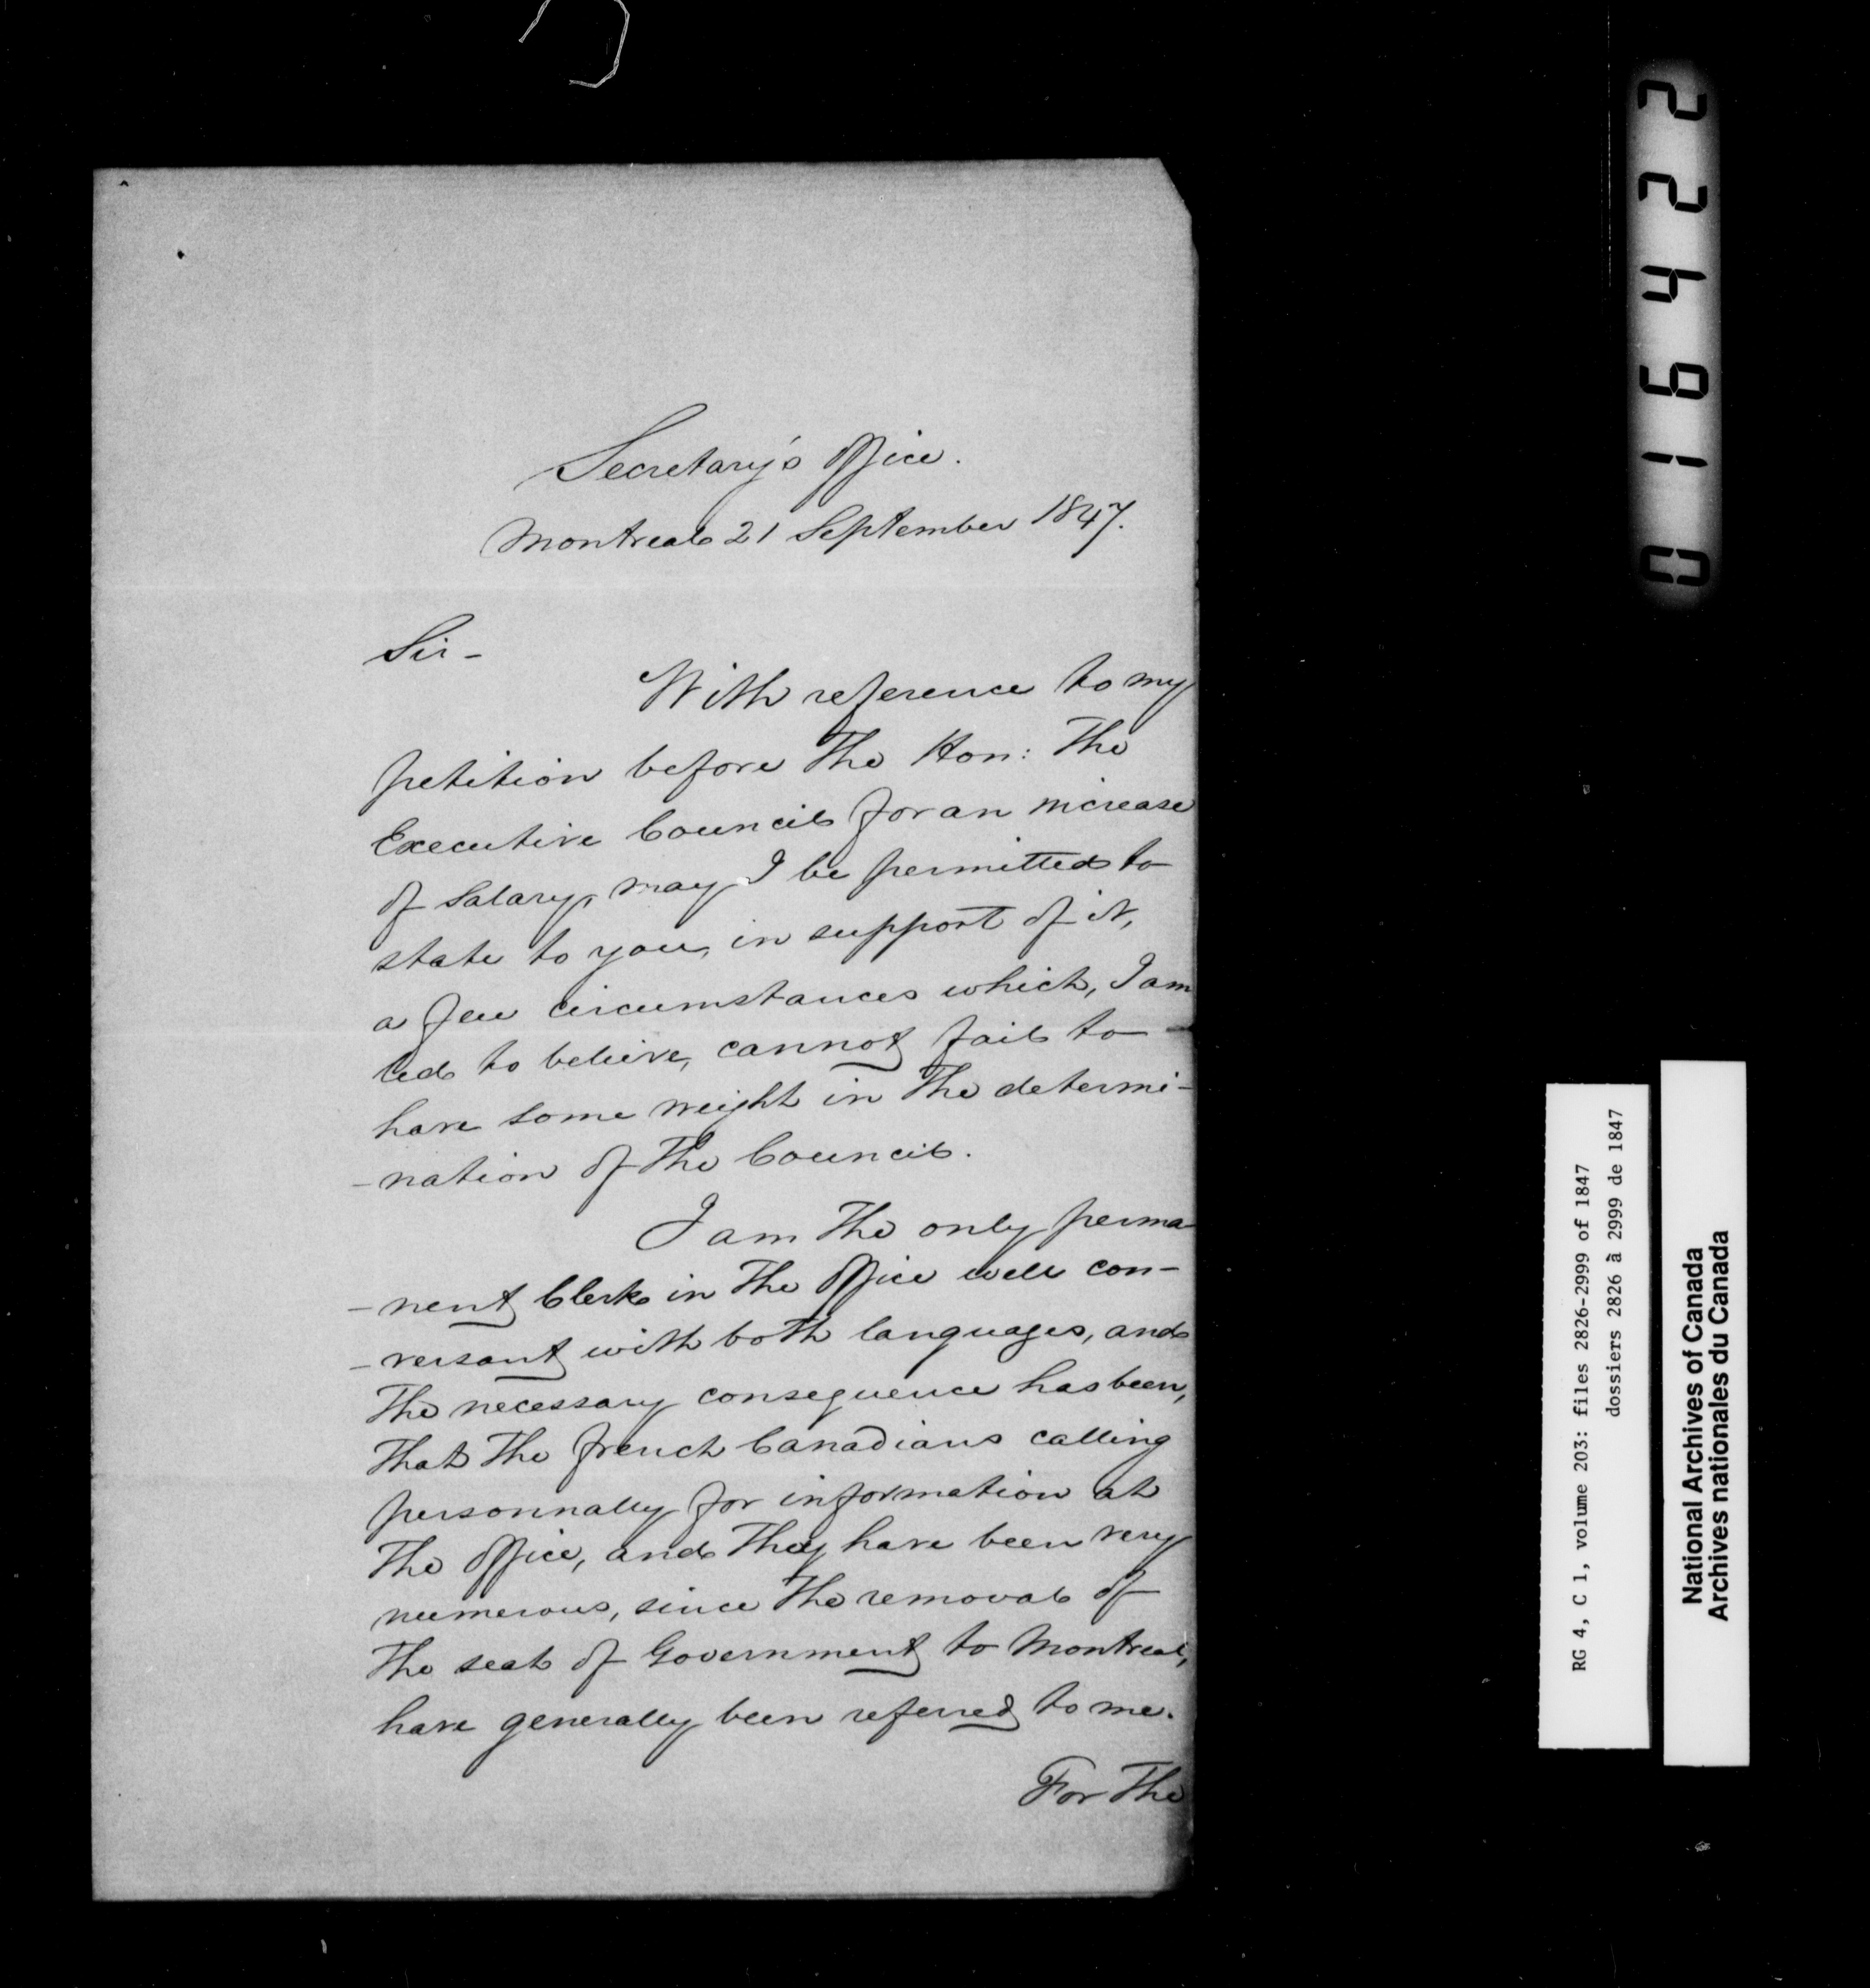 Secretary's Office.
Montreal 21 September 1847.
Sir-
With reference to my
petition before The Hon: The
Executive Council for an increase
of Salary, may I be permitted to
state to you, in support of it,
a few circumstances which, I am
led to believe, cannot fail to
have some weight in The determi-
-nation of The Council.
I am The only perma
-nent Clerk in The Office well con-
-versant with both languages, and
The necessary consequence has been,
That The french Canadians calling
personnally for information at
The Office, and They have been very
numerous, since The removal of
The seat of Government to Montreal,
have generally been referred to me.
For The
016422
RG 4, C 1, volume 203: files 2826-2999 of 1847
dossiers 2826 à 2999 de 1847
National Archives of Canada
Archives nationales du Canada